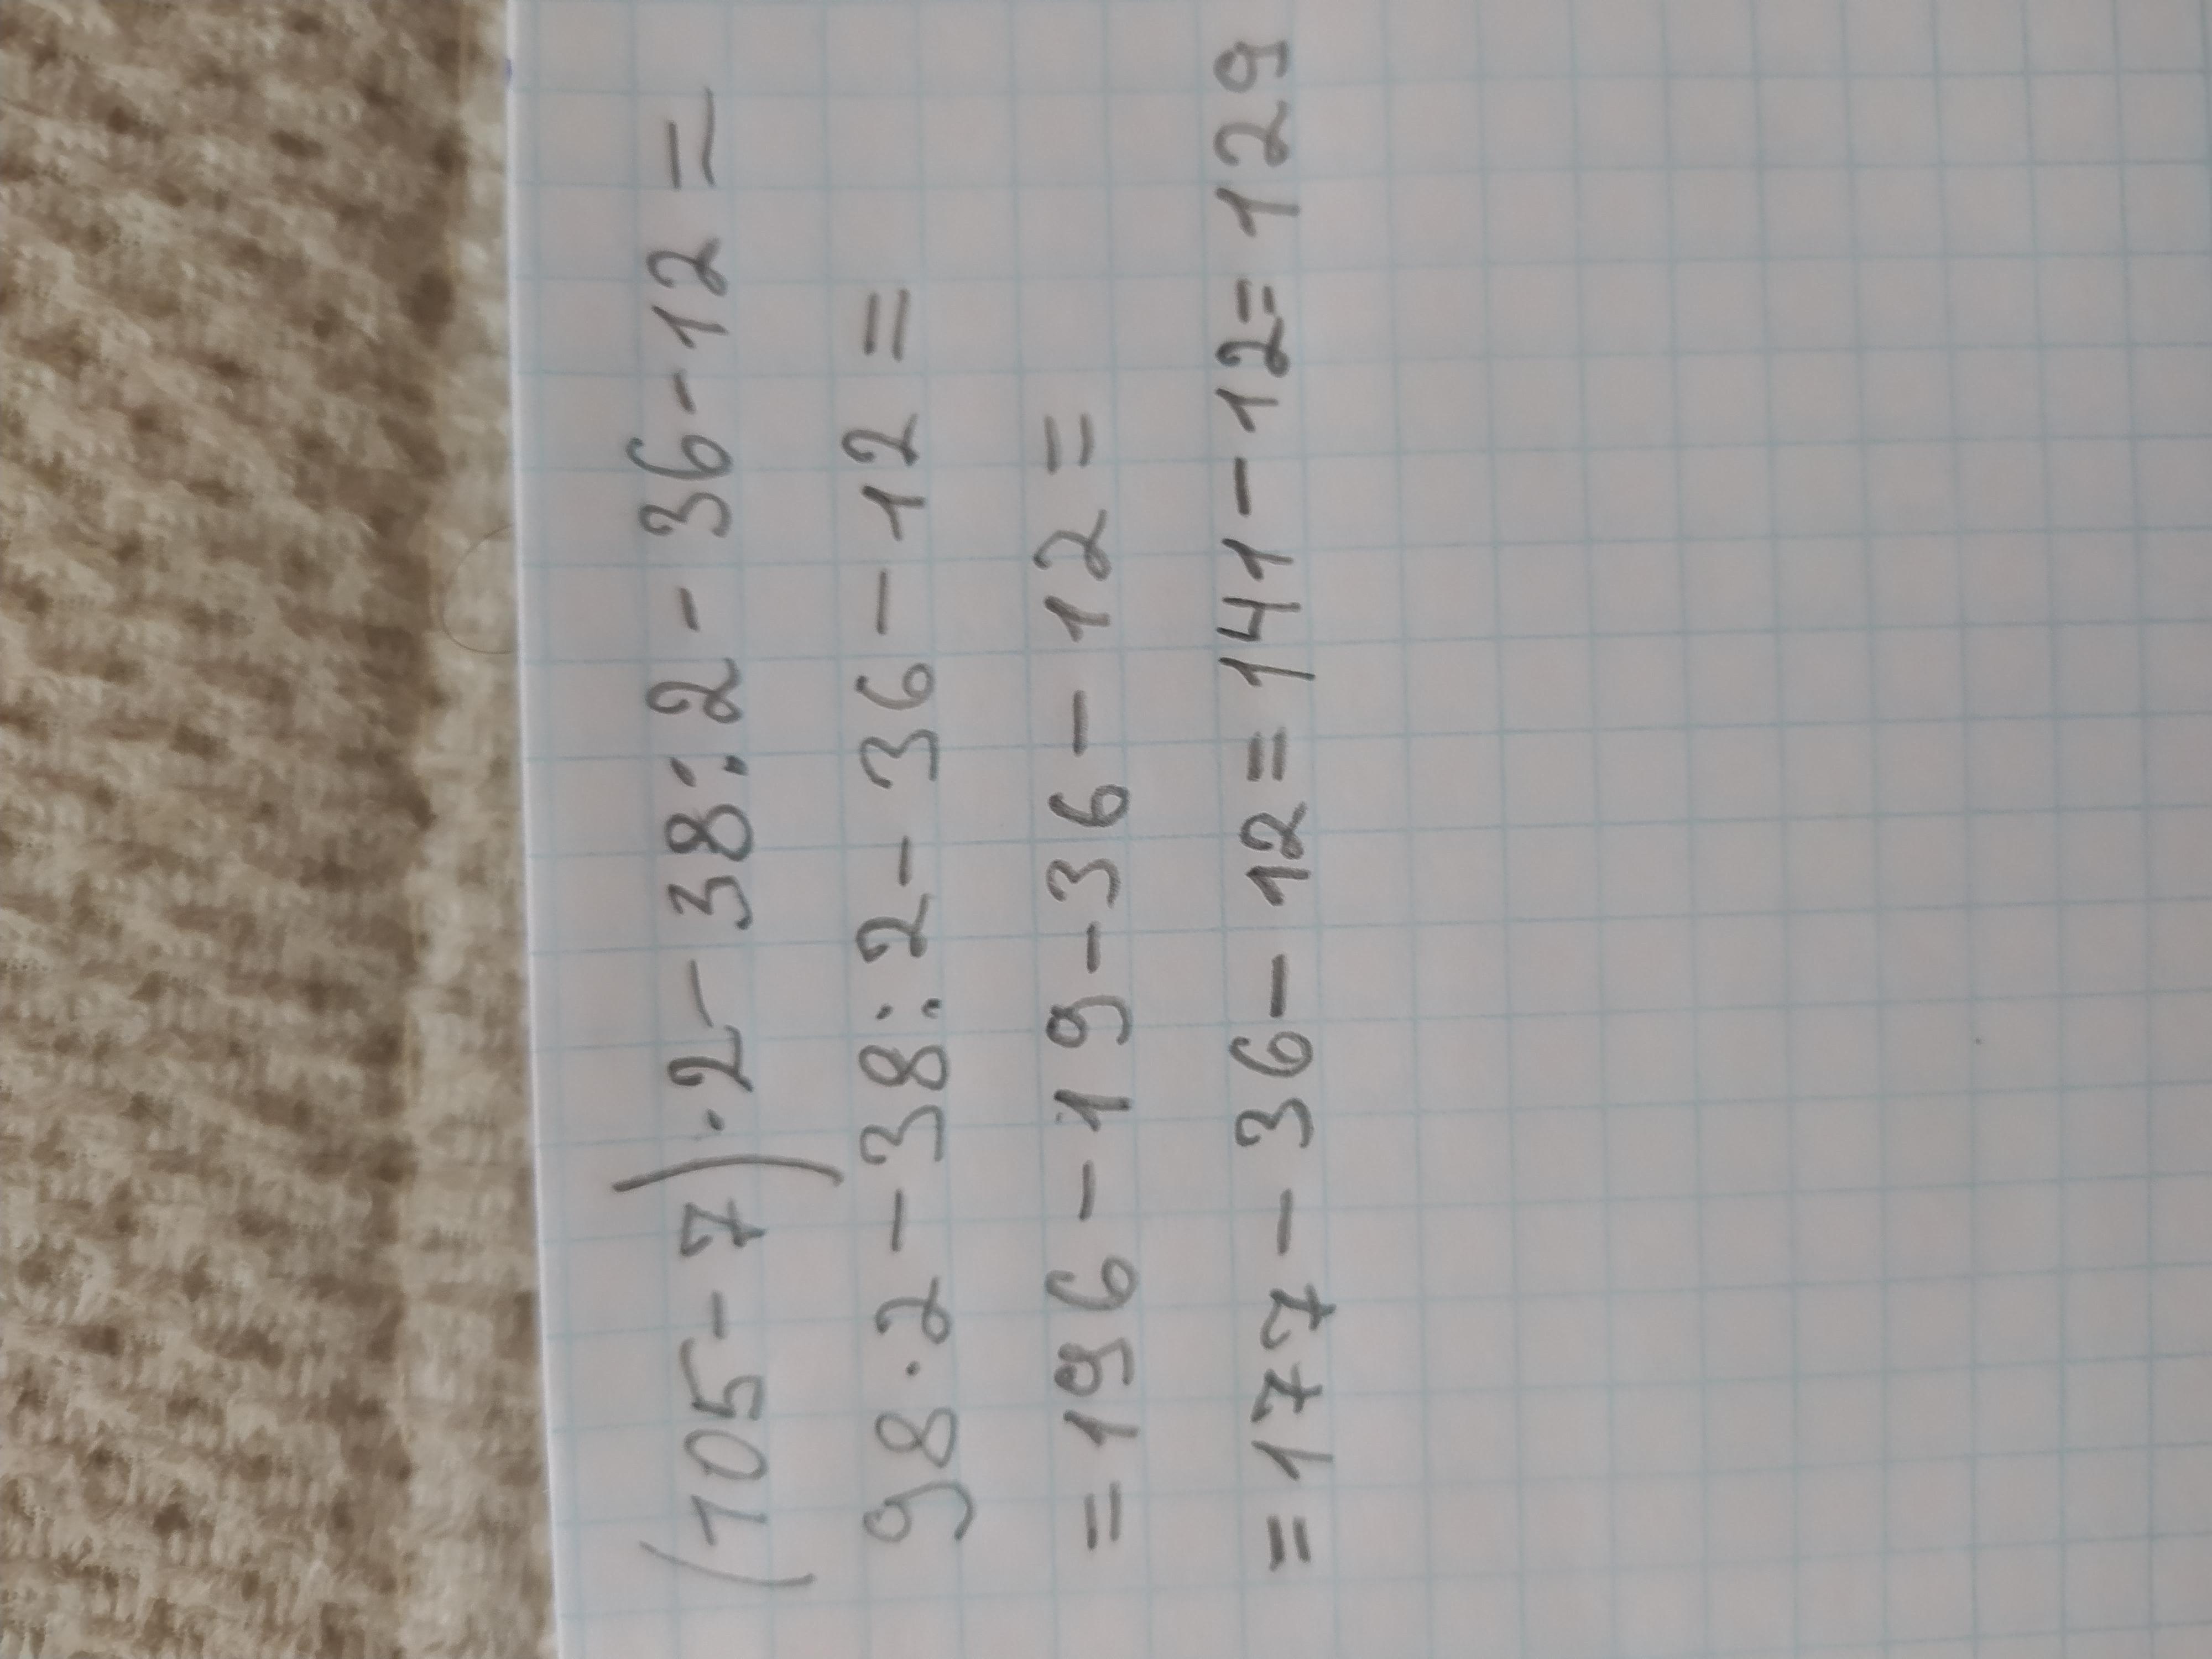 (105-7)·2-38:2-36-12=
98·2-38:2-36-12=
=196-19-36-12=
=177-36-12=141-12=129